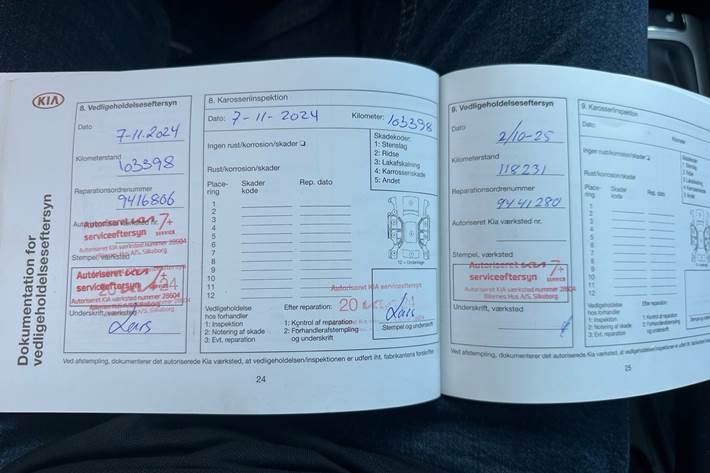 KIA
Dokumentation for
vedligeholdelseseftersyn
8. Vedligeholdelseseftersyn
Dato
7-11.2024
Kilometerstand
103398
Reparationsordrenummer
9416806
Autoriseret
serviceeftersyn
SERVICE
Autoriseret KIA værksted nummer 28604
Bilernes Hus A/S, Silkeborg
Stempel, værksted
Autoriseret
serviceeftersyn
Autoriseret KIA værksted nummer 28604
Underskrift, værksted
Lars
8. Karosseriinspektion
Dato: 7-11-2024
Kilometer: 103398
Ingen rust/korrosion/skader ❑
Rust/korrosion/skader
Skadekoder:
1: Stenslag
2: Ridse
3: Lakafskalning
4: Karosseriskade
5: Andet
Place-
ring
Skader
kode
Rep. dato
1
2
3
4
5
6
7
8
9
10
11
12
12 = Undervogn
Vedligeholdelse
hos forhandler
1: Inspektion
2: Notering af skade
3: Evt. reparation
Efter reparation:
1: Kontrol af reparation
2: Forhandlerafstempling
og underskrift
Autoriseret KIA serviceeftersyn
Lars
Stempel og underskrift
Ved afstempling, dokumenterer det autoriserede Kia værksted, at vedligeholdelsen/inspektionen er udført iht. fabrikantens forskrifter
24
9. Vedligeholdelseseftersyn
Dato
2/10-25
Kilometerstand
118231
Reparationsordrenummer
9441280
Autoriseret Kia værksted nr.
Stempel, værksted
Autoriseret
serviceeftersyn
SERVICE
Autoriseret KIA værksted nummer 28604
Bilernes Hus A/S, Silkeborg
Underskrift, værksted
9. Karosseriinspektion
Dato:
Kilometer
Ingen rust/korrosion/skader ❑
Rust/korrosion/skader
Place-
ring
Skader
kode
Rep. dato
1
2
3
4
5
6
7
8
9
10
11
12
Vedligeholdelse
hos forhandler
1: Inspektion
2: Notering af skade
3: Evt. reparation
Efter reparation:
1: Kontrol af reparation
2: Forhandlerafstempling
og underskrift
25